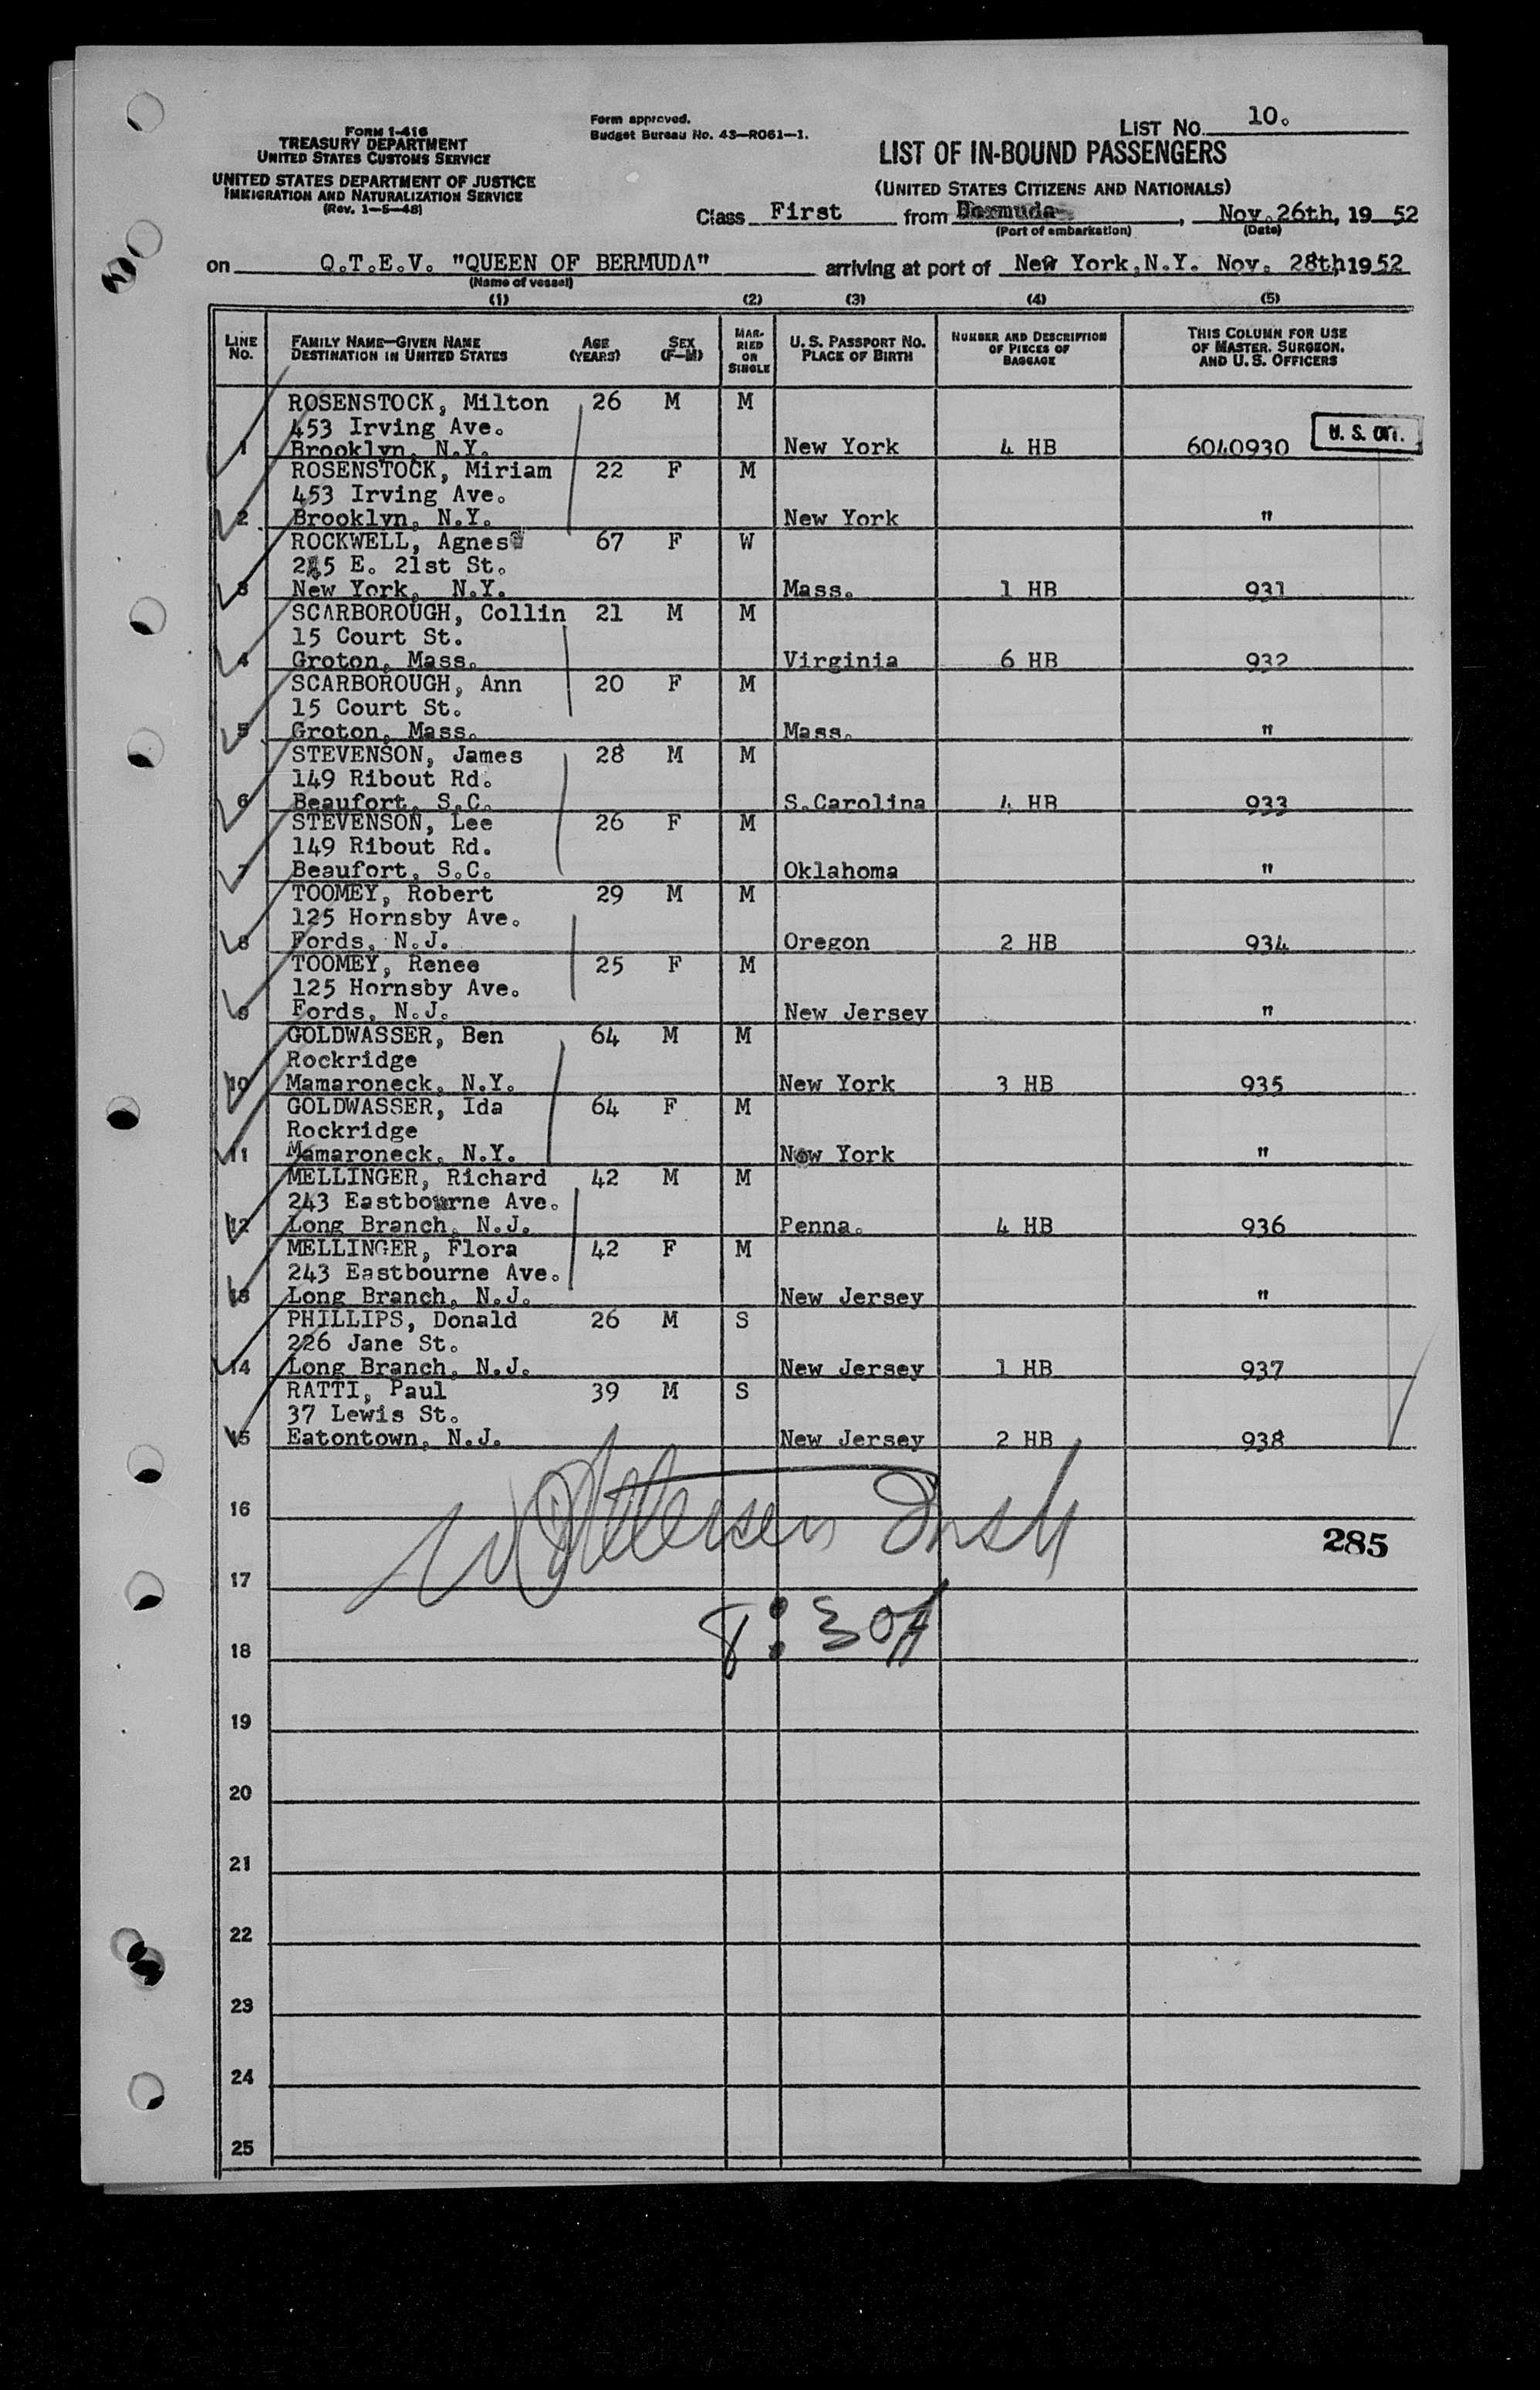 Form I-416
TREASURY DEPARTMENT
UNITED STATES CUSTOMS SERVICE
UNITED STATES DEPARTMENT OF JUSTICE
IMMIGRATION AND NATURALIZATION SERVICE
(Rev. 1-5-48)
Form approved.
Budget Bureau No. 43-R061-1.
LIST NO. 10.
LIST OF IN-BOUND PASSENGERS
(UNITED STATES CITIZENS AND NATIONALS)
Class First from Bermuda, Nov. 26th, 1952
(Port of embarkation) (Date)
on Q.T.E.V. "QUEEN OF BERMUDA" arriving at port of New York, N.Y. Nov. 28th 1952
(Name of vessel)
(1) (2) (3) (4) (5)
LINE No. FAMILY NAME—GIVEN NAME DESTINATION IN UNITED STATES AGE (YEARS) SEX (F—M) MARRIED OR SINGLE U. S. PASSPORT NO. PLACE OF BIRTH NUMBER AND DESCRIPTION OF PIECES OF BAGGAGE THIS COLUMN FOR USE OF MASTER, SURGEON, AND U. S. OFFICERS
ROSENSTOCK, Milton 26 M M
453 Irving Ave. U. S. Cit.
1 Brooklyn, N.Y. New York 4 HB 6040930
ROSENSTOCK, Miriam 22 F M
453 Irving Ave.
2 Brooklyn, N.Y. New York "
ROCKWELL, Agnes 67 F W
E. 21st St.
3 New York, N.Y. Mass. 1 HB 931
SCARBOROUGH, Collin 21 M M
15 Court St.
4 Groton, Mass. Virginia 6 HB 932
SCARBOROUGH, Ann 20 F M
15 Court St.
5 Groton, Mass. Mass. "
STEVENSON, James 28 M M
149 Ribout Rd.
6 Beaufort, S.C. S.Carolina 4 HB 933
STEVENSON, Lee 26 F M
149 Ribout Rd.
7 Beaufort, S.C. Oklahoma "
TOOMEY, Robert 29 M M
125 Hornsby Ave.
8 Fords, N.J. Oregon 2 HB 934
TOOMEY, Renee 25 F M
125 Hornsby Ave.
9 Fords, N.J. New Jersey "
GOLDWASSER, Ben 64 M M
Rockridge
10 Mamaroneck, N.Y. New York 3 HB 935
GOLDWASSER, Ida 64 F M
Rockridge
11 Mamaroneck, N.Y. New York "
MELLINGER, Richard 42 M M
243 Eastbourne Ave.
12 Long Branch, N.J. Penna. 4 HB 936
MELLINGER, Flora 42 F M
243 Eastbourne Ave.
13 Long Branch, N.J. New Jersey "
PHILLIPS, Donald 26 M S
226 Jane St.
14 Long Branch, N.J. New Jersey 1 HB 937
RATTI, Paul 39 M S
37 Lewis St.
15 Eatontown, N.J. New Jersey 2 HB 938
16
285
17
8:30A
18
19
20
21
22
23
24
25